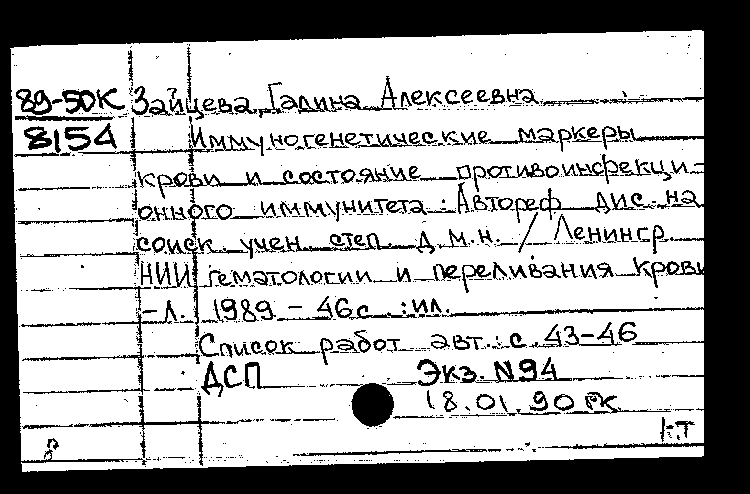 89-50К Зайцева, Галина Алексеевна
8154 Иммуногенетические маркеры
крови и состояние противоинфекци-
онного иммунитета : Автореф. дис. на
соиск. учен. степ. д.м.н. / Ленингр.
НИИ гематологии и переливания крови
- Л. 1989 - 46с. : ил.
Список работ авт.: с. 43-46
ДСП Экз. N94
18.01.90 РК